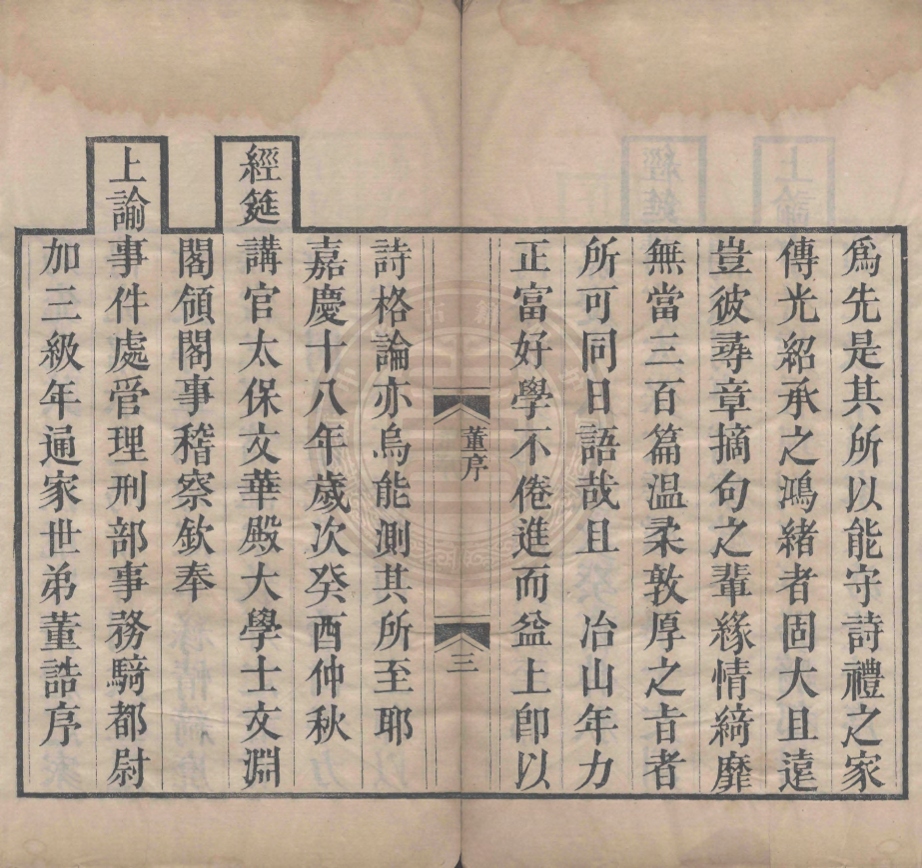 為先是其所以能守詩禮之家
傳光紹承之鴻緒者固大且遠
豈彼尋章摘句之輩緣情綺靡
無當三百篇温柔敦厚之旨者
所可同日語哉且 冶山年力
正富好學不倦進而益上卽以
董序
三
詩格論亦烏能測其所至耶
嘉慶十八年歲次癸酉仲秋
經筵講官太保文華殿大學士文淵
閣領閣事稽察欽奉
上諭事件處管理刑部事務騎都尉
加三級年通家世弟董誥序